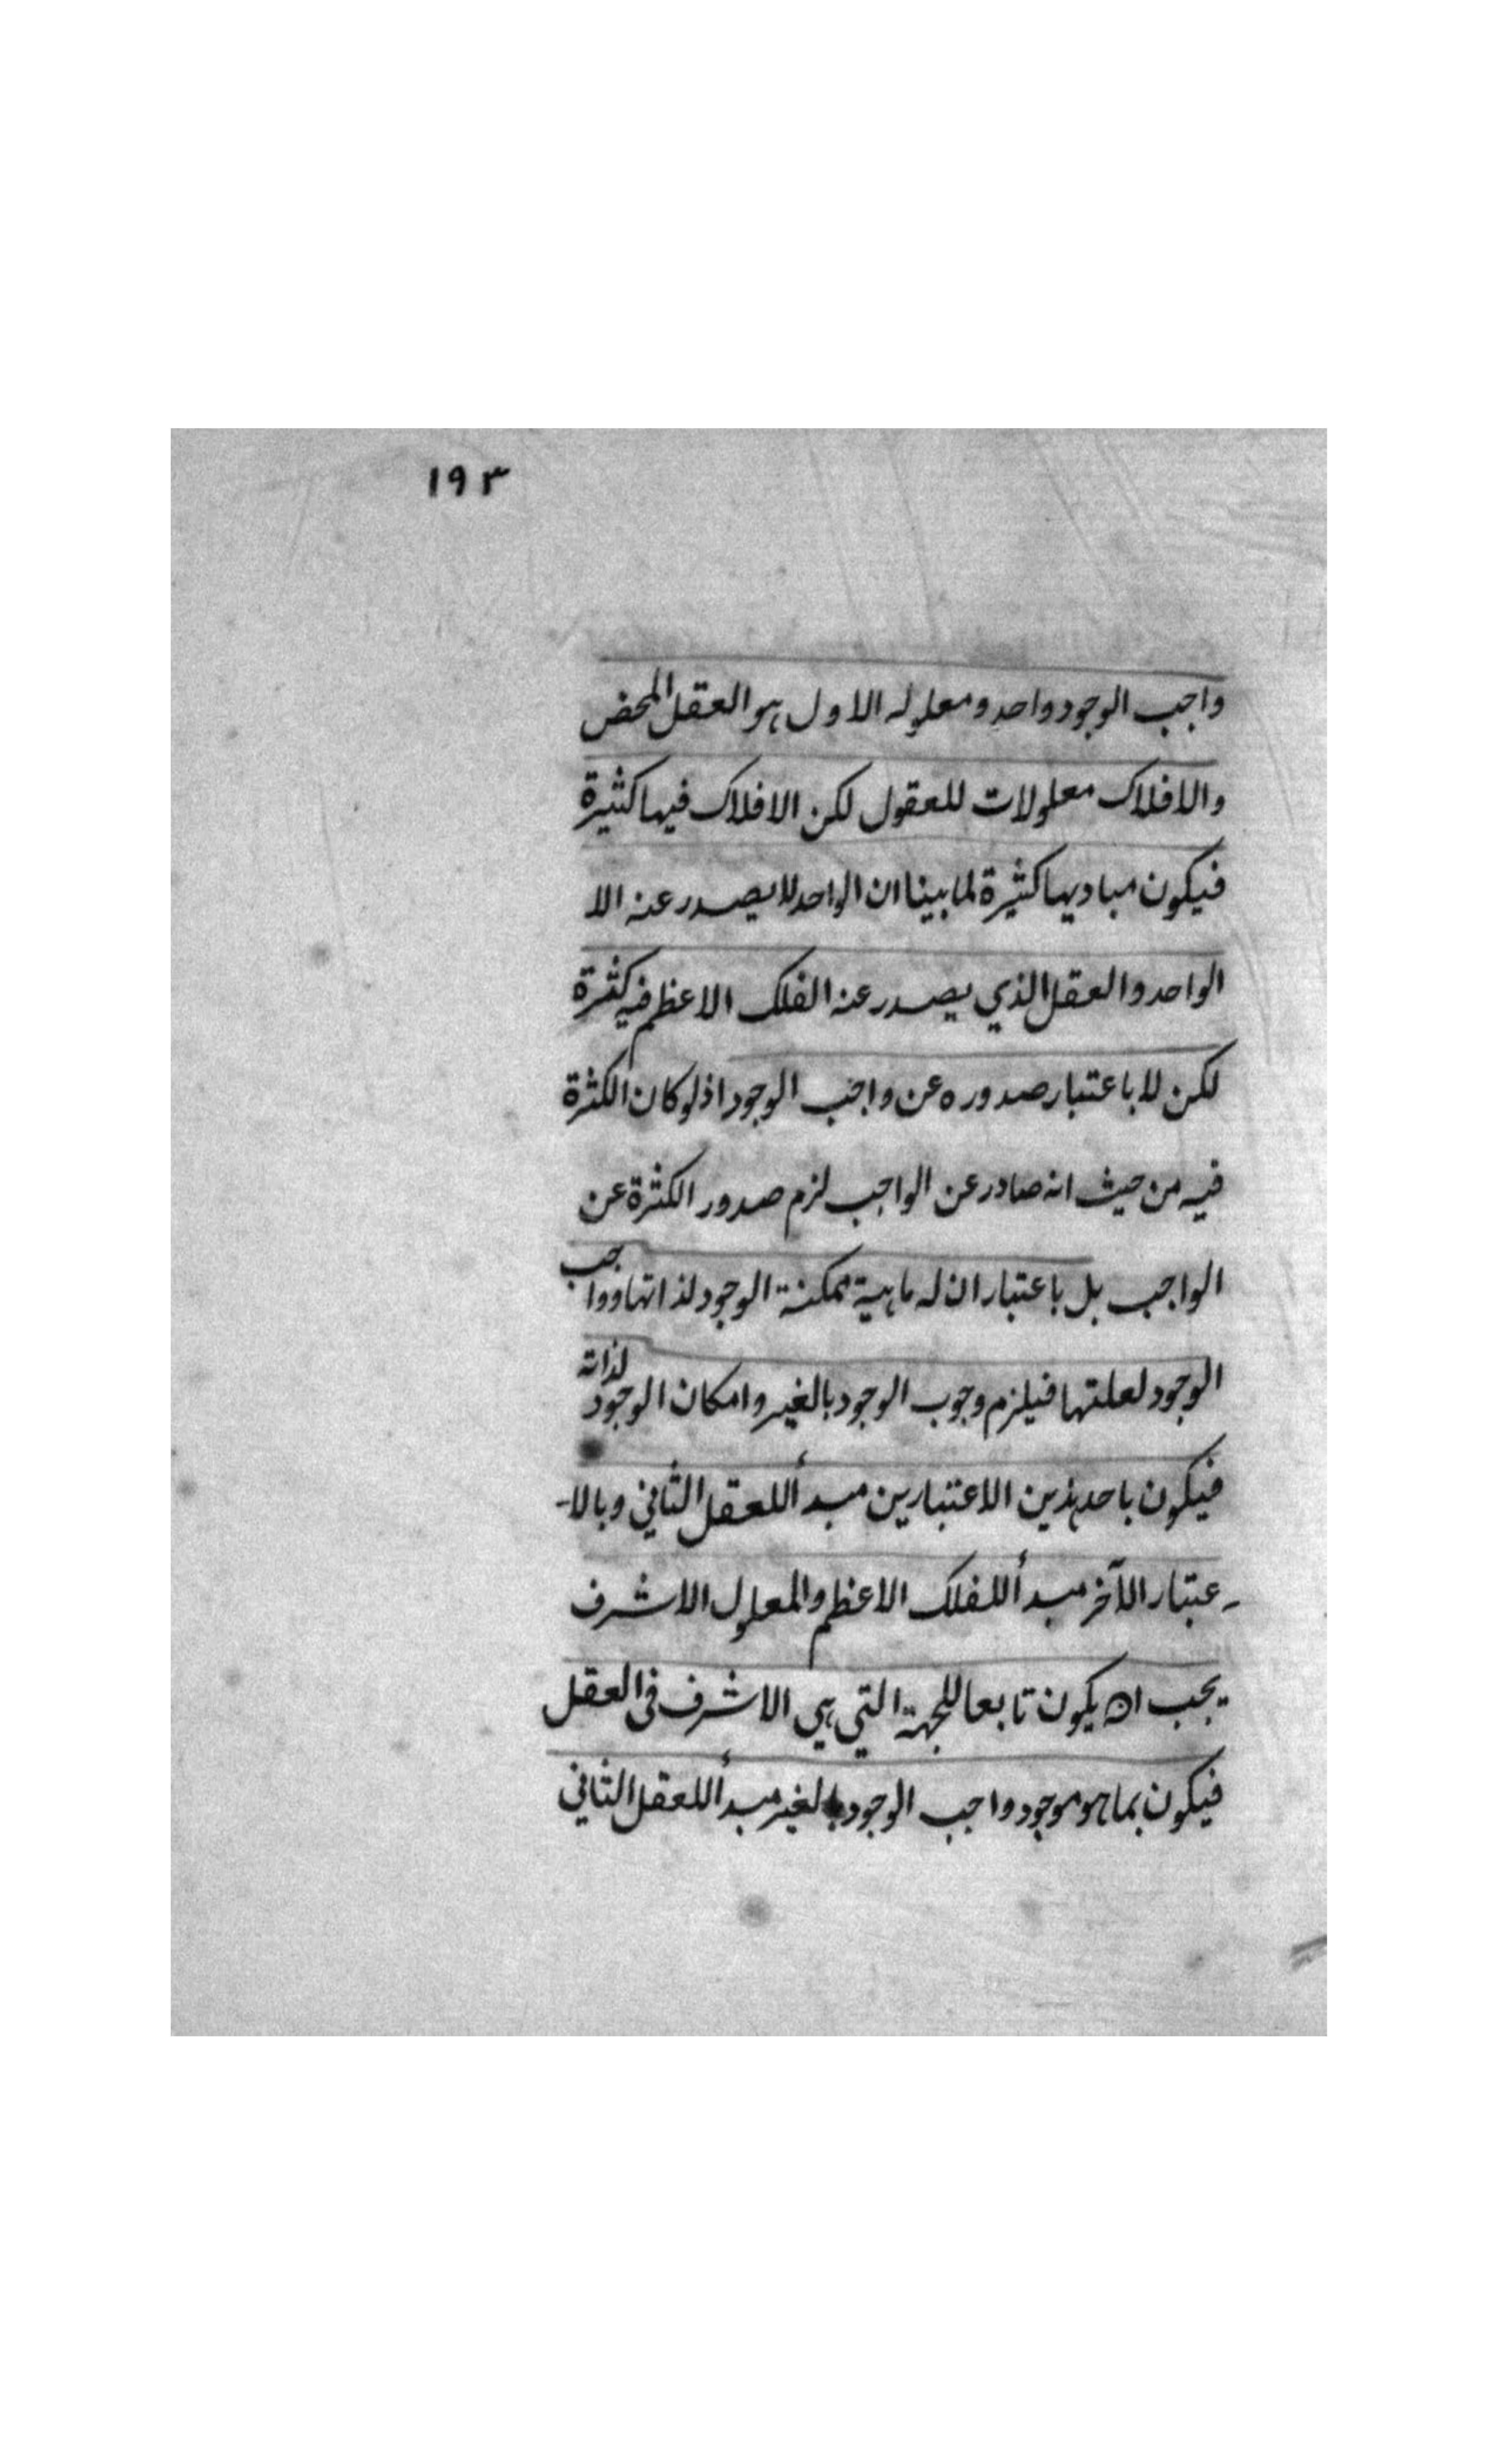 ١٩٣
واجب الوجود واحد ومعلوله الاول هو العقل المحض
والافلاك معلولات للعقول لكن الافلاك فيها كثيرة
فيكون مباديها كثيرة لما بينا ان الواحد لا يصدر عنه الا
الواحد والعقل الذي يصدر عنه الفلك الاعظم فيه كثرة
لكن لا باعتبار صدوره عن واجب الوجود اذ لو كان الكثرة
فيه من حيث انه صادر عن الواجب لزم صدور الكثرة عن
الواجب بل باعتبار ان له ماهية ممكنة الوجود لذاتها وواجب
الوجود لعلتها فيلزم وجوب الوجود بالغير وامكان الوجود لذاته
فيكون باحد هذين الاعتبارين مبدأ للعقل الثاني وبالا-
-عتبار الآخر مبدأ للفلك الاعظم والمعلول الاشرف
يجب ان يكون تابعا للجهة التي هي الاشرف في العقل
فيكون بما هو موجود واجب الوجود بالغير مبدأ للعقل الثاني